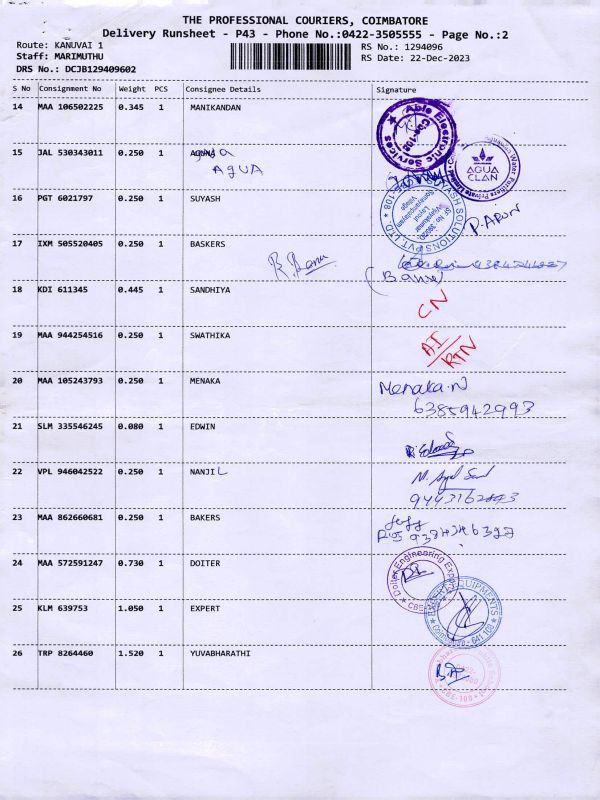 THE PROFESSIONAL COURIERS, COIMBATORE
Delivery Runsheet - P43 - Phone No.:0422-3505555 - Page No.:2
Route: KANUVAI 1 RS No.: 1294096
Staff: MARIMUTHU RS Date: 22-Dec-2023
DRS No.: DCJB129409602
S No Consignment No Weight PCS Consignee Details Signature
14 MAA 106502225 0.345 1 MANIKANDAN
Able Electronic Services
15 JAL 530343011 0.250 1
AQUA
AQUA CLAN
16 PGT 6021797 0.250 1 SUYASH
P. Arun
17 IXM 505520405 0.250 1 BASKERS
18 KDI 611345 0.445 1 SANDHIYA
CN
19 MAA 944254516 0.250 1 SWATHIKA
RTN
20 MAA 105243793 0.250 1 MENAKA Menaka.N
6385942993
21 SLM 335546245 0.080 1 EDWIN
22 VPL 946042522 0.250 1 NANJIL
23 MAA 862660681 0.250 1 BAKERS
24 MAA 572591247 0.730 1 DOITER
Doiter Engineering
25 KLM 639753 1.050 1 EXPERT
EQUIPMENTS
641 108
26 TRP 8264460 1.520 1 YUVABHARATHI